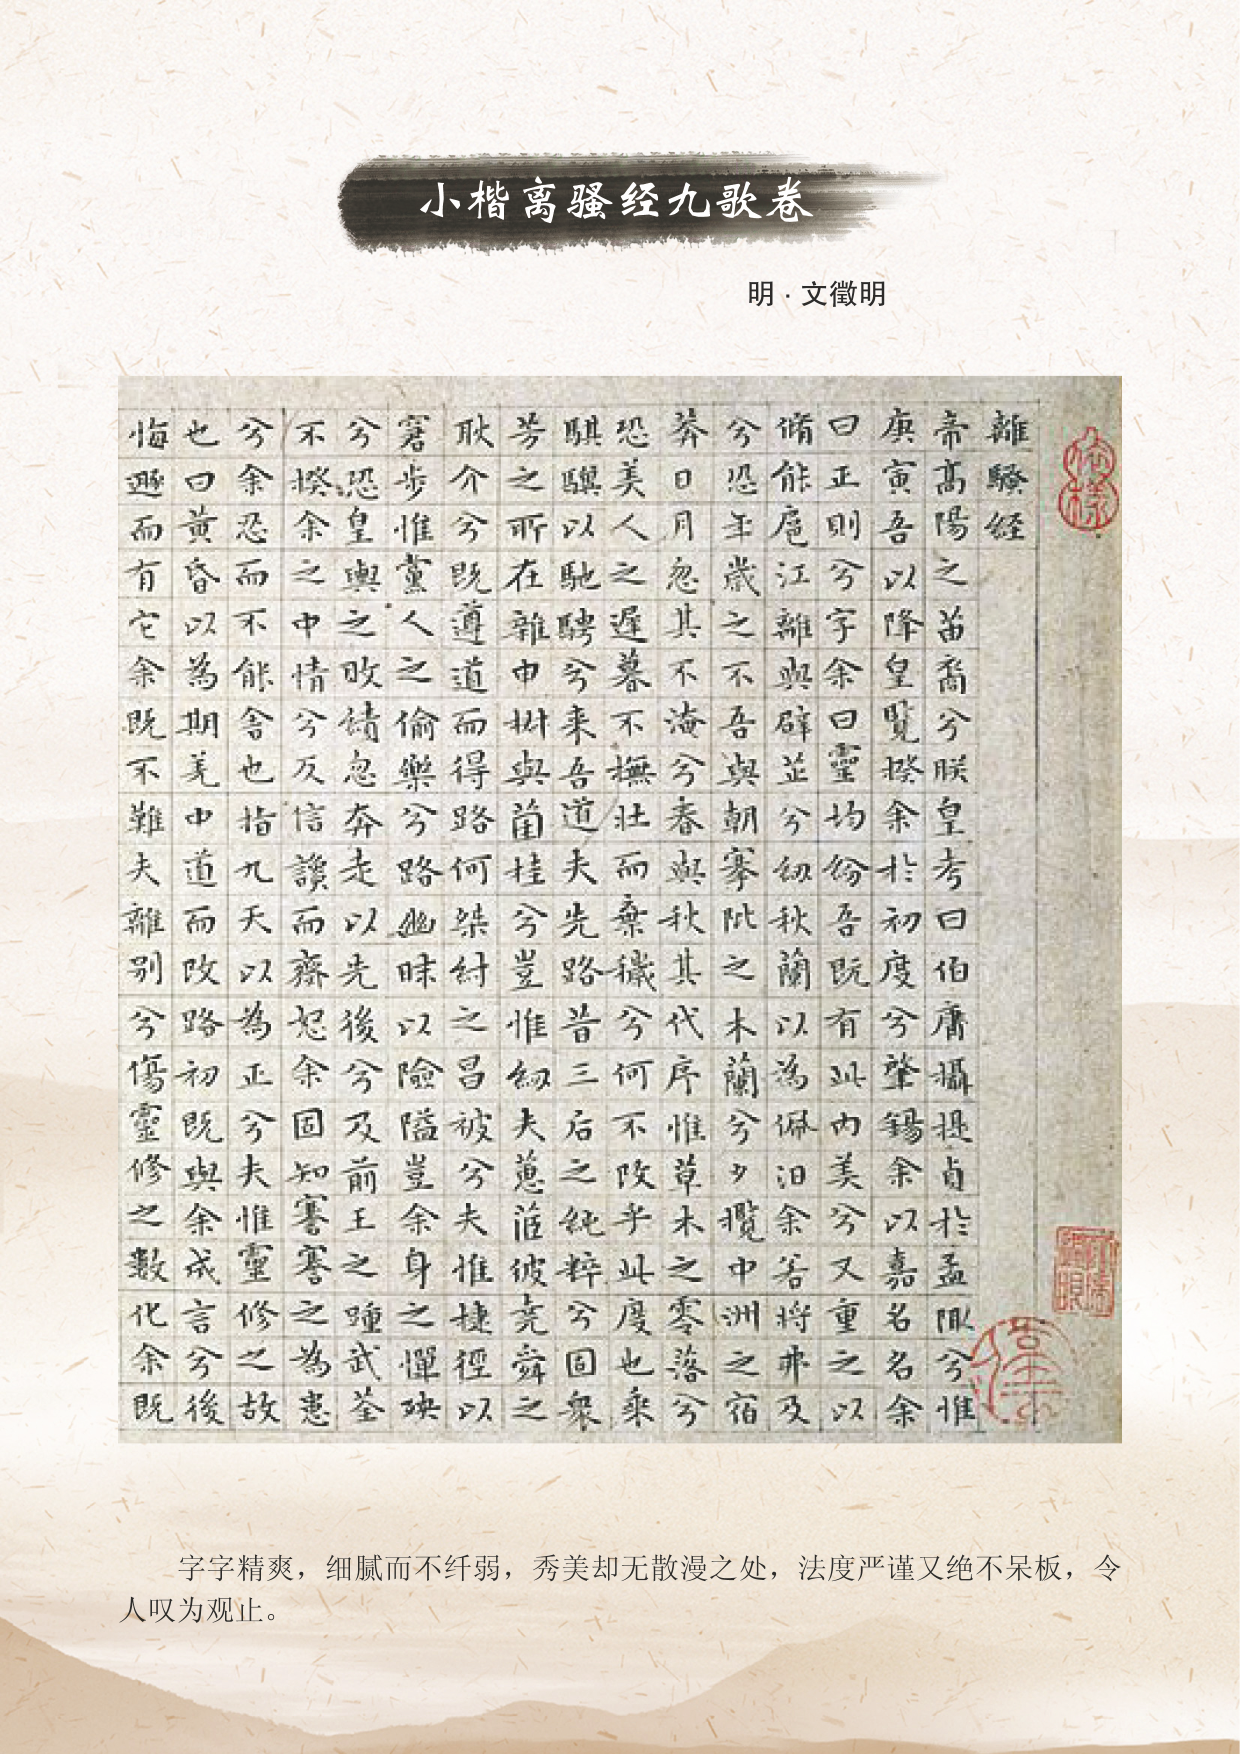 小楷离骚经九歌卷
明·文徵明
離騷経
帝高陽之苗裔兮朕皇考曰伯庸攝提貞於孟陬兮惟
庚寅吾以降皇覽揆余於初度兮肇錫余以嘉名名余
曰正則兮字余曰靈均紛吾既有此内美兮又重之以
脩能扈江離與辟芷兮紉秋蘭以為佩汩余若將弗及
兮恐年歲之不吾與朝搴阰之木蘭兮夕攬中洲之宿
莽日月忽其不淹兮春與秋其代序惟草木之零落兮
恐美人之遲暮不撫壯而棄穢兮何不改乎此度也乘
騏驥以馳騁兮来吾道夫先路昔三后之純粹兮固衆
芳之所在雜申椒與菌桂兮豈惟紉夫蕙茝彼堯舜之
耿介兮既遵道而得路何桀紂之昌被兮夫惟捷徑以
窘步惟黨人之偷樂兮路幽昧以險隘豈余身之憚殃
兮恐皇輿之敗績忽奔走以先後兮及前王之踵武荃
不揆余之中情兮反信讒而齋怒余固知謇謇之為患
兮余忍而不能舍也指九天以為正兮夫惟靈修之故
也曰黄昏以為期羌中道而改路初既與余成言兮後
悔遯而有它余既不難夫離别兮傷靈修之數化余既
字字精爽，细腻而不纤弱，秀美却无散漫之处，法度严谨又绝不呆板，令
人叹为观止。